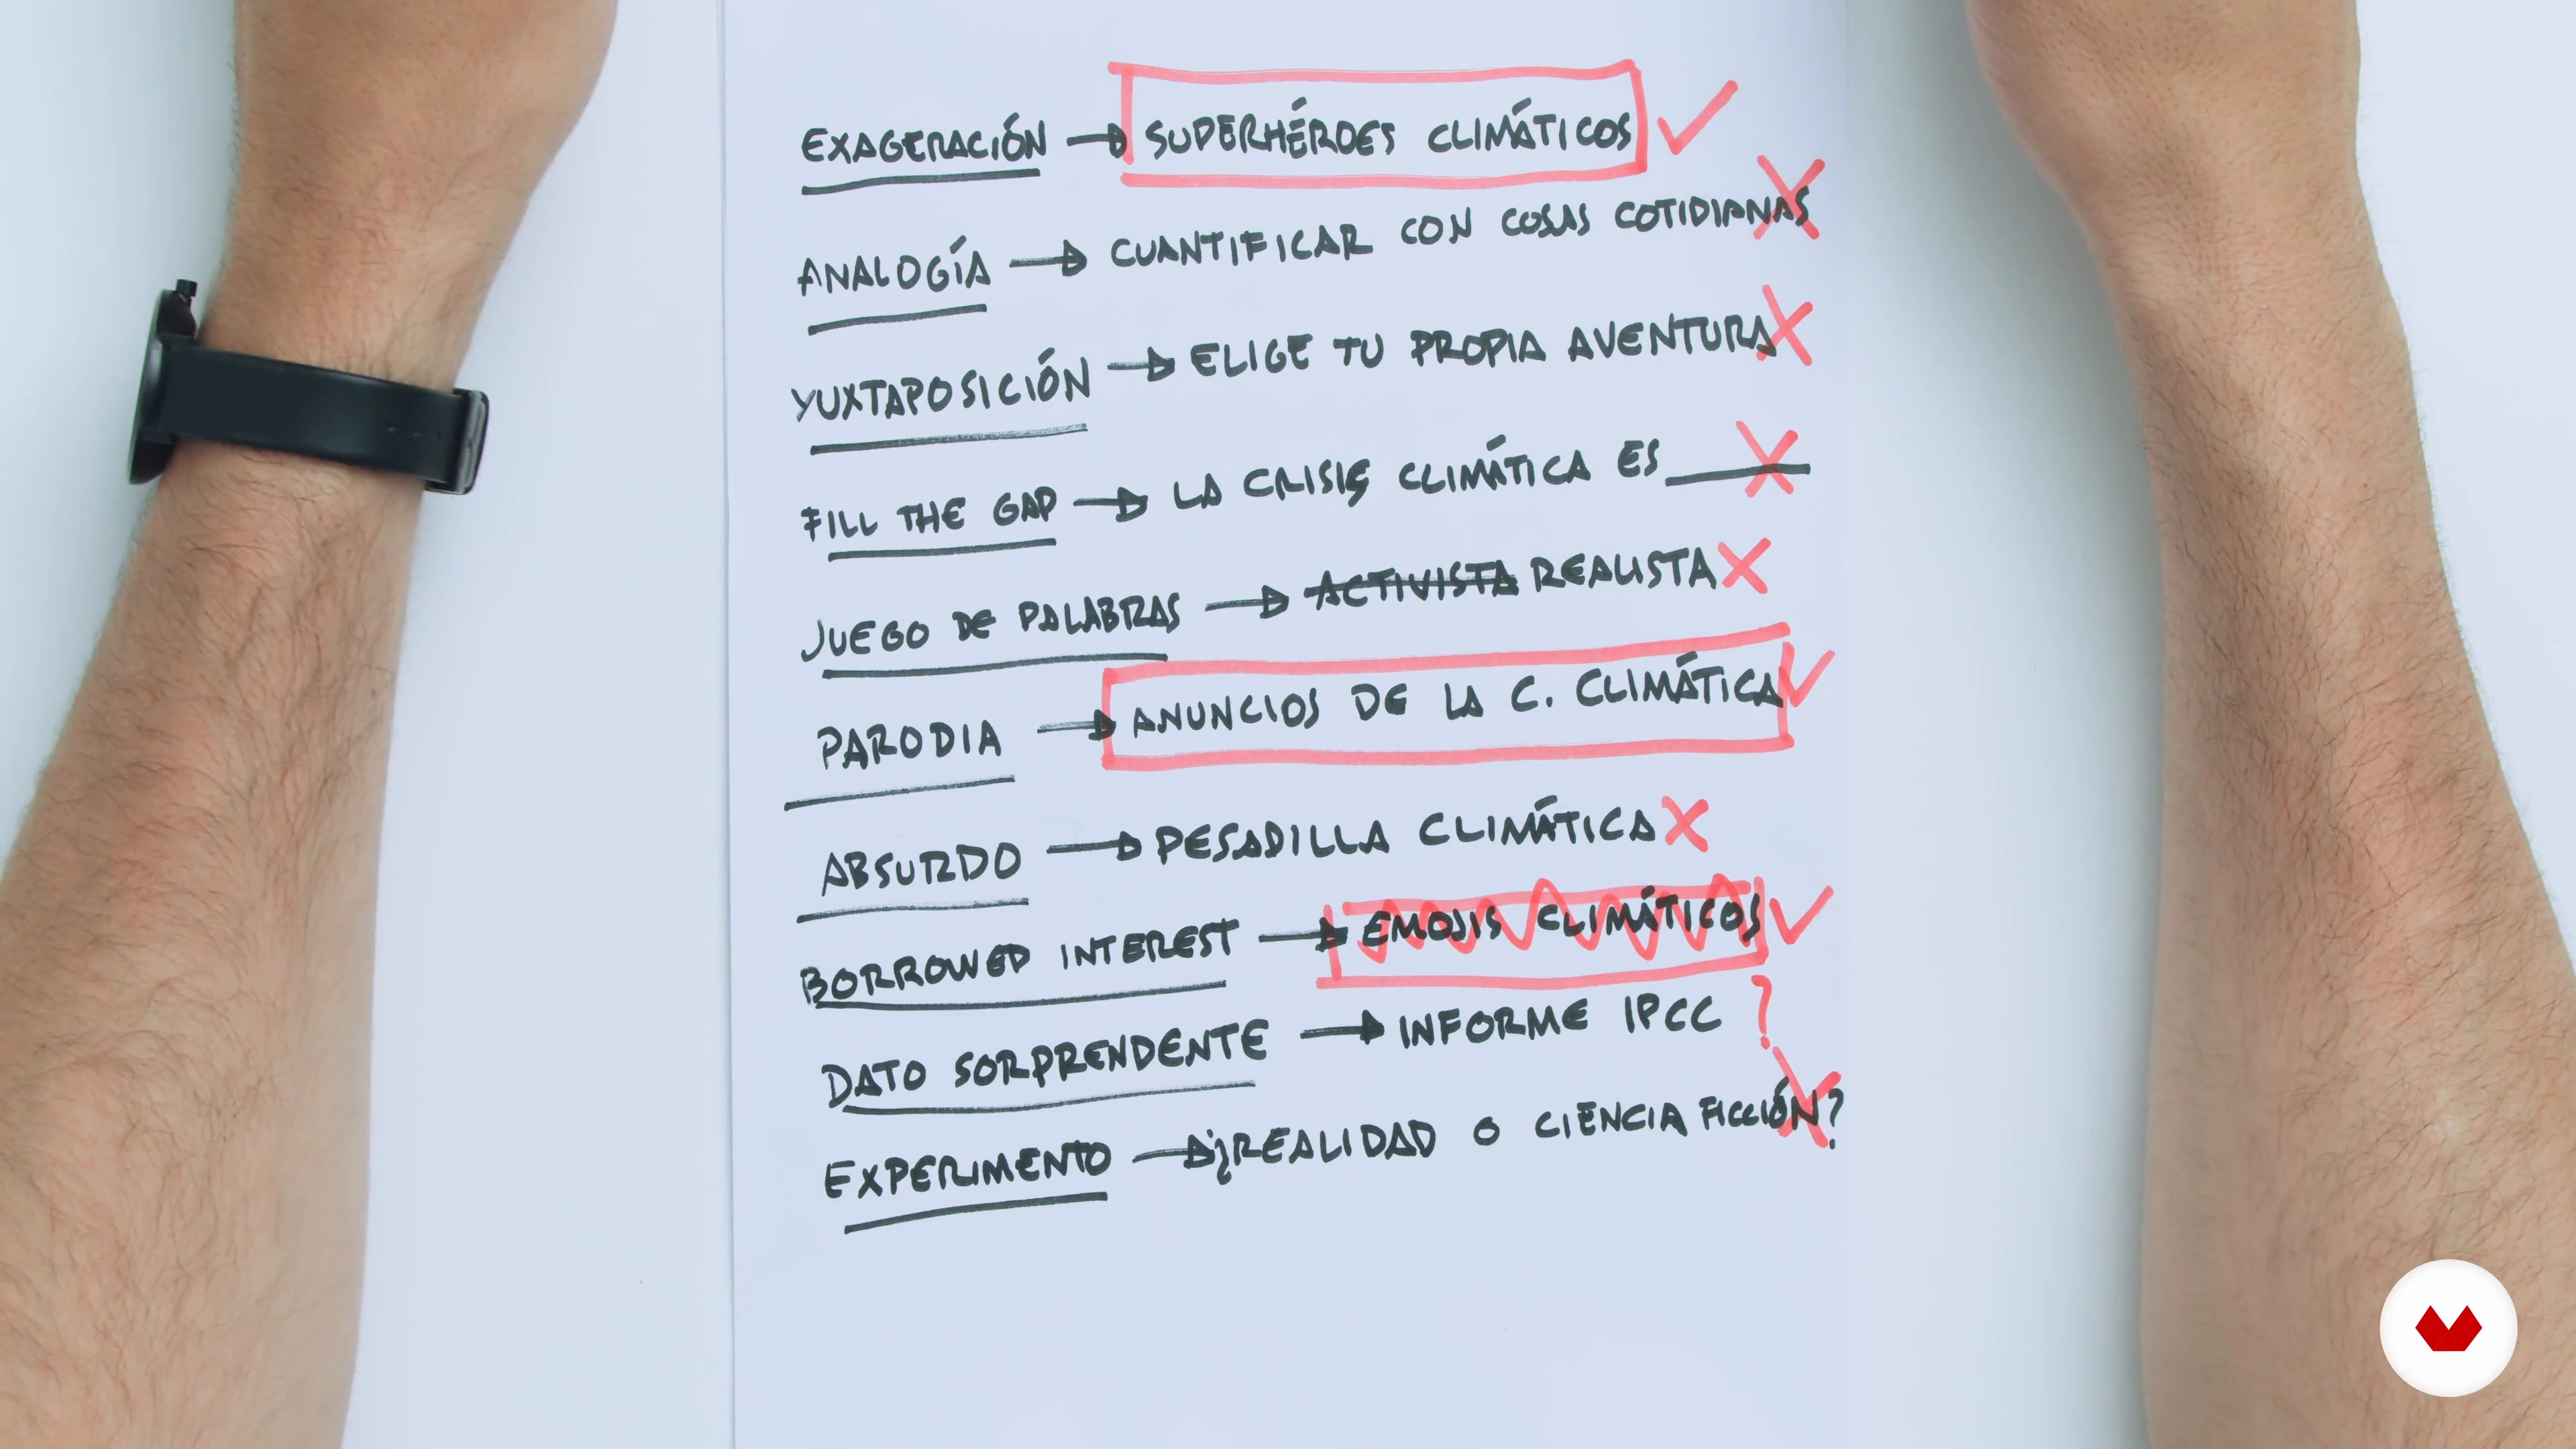 EXAGERACIÓN → SUPERHÉROES CLIMÁTICOS ✓
ANALOGÍA → CUANTIFICAR CON COSAS COTIDIANAS X
YUXTAPOSICIÓN → ELIGE TU PROPIA AVENTURA X
FILL THE GAP → LA CRISIS CLIMÁTICA ES ____ X
JUEGO DE PALABRAS → ACTIVISTA REALISTA X
PARODIA → ANUNCIOS DE LA C. CLIMÁTICA ✓
ABSURDO → PESADILLA CLIMÁTICA X
BORROWED INTEREST → EMOJIS CLIMÁTICOS ✓
DATO SORPRENDENTE → INFORME IPCC ?
EXPERIMENTO → ¿REALIDAD O CIENCIA FICCIÓN? X